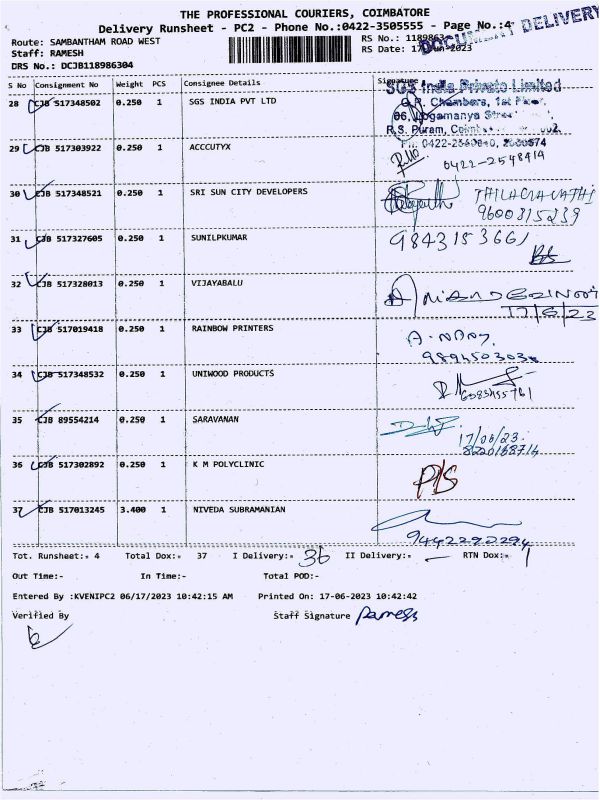 THE PROFESSIONAL COURIERS, COIMBATORE
Delivery Runsheet - PC2 - Phone No.:0422-3505555 - Page No.:4
DOCUMENT DELIVERY
Route: SAMBANTHAM ROAD WEST
RS No.: 1189863
Staff: RAMESH
RS Date: 17-Jun-2023
DRS No.: DCJB118986304
S No Consignment No Weight PCS Consignee Details Signature
SGS India Private Limited
28 CJB 517348502 0.250 1 SGS INDIA PVT LTD
Chambers, 1st Floor,
66, Logamanya Street
R.S. Puram,
29 CJB 517303922 0.250 1 ACCCUTYX
0422-2548414
30 CJB 517348521 0.250 1 SRI SUN CITY DEVELOPERS THILAGAVATHI
9600815239
31 CJB 517327605 0.250 1 SUNILPKUMAR 9843153661
32 CJB 517328013 0.250 1 VIJAYABALU
17/6/23
33 CJB 517019418 0.250 1 RAINBOW PRINTERS
34 CJB 517348532 0.250 1 UNIWOOD PRODUCTS
35 CJB 89554214 0.250 1 SARAVANAN
17/06/23.
36 CJB 517302892 0.250 1 K M POLYCLINIC
37 CJB 517013245 3.400 1 NIVEDA SUBRAMANIAN
9442290294
Tot. Runsheet:- 4 Total Dox:- 37 I Delivery:- 36 II Delivery:- - RTN Dox:- 1
Out Time:- In Time:- Total POD:-
Entered By :KVENIPC2 06/17/2023 10:42:15 AM Printed On: 17-06-2023 10:42:42
Verified By Staff Signature Ramesh